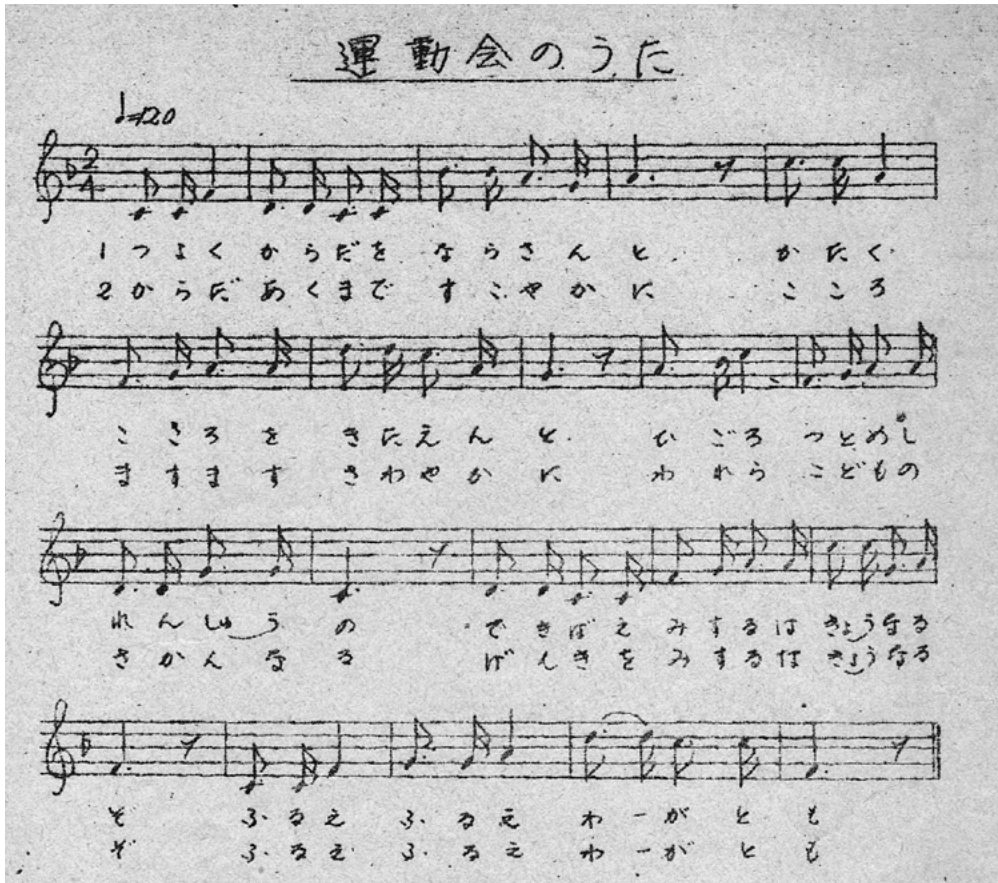 運動会のうた
♩=120
2
4
1 つよく からだを ならさん と かたく
2 からだ あくまで すこやか に こころ
こころを きたえん と ひごろ つとめし
ますます さわやか に われら こどもの
れんしゅう の できばえ みするは きょうなる
さかんな る げんきを みするは きょうなる
ぞ ふるえ ふるえ わーがと も
ぞ ふるえ ふるえ わーがと も